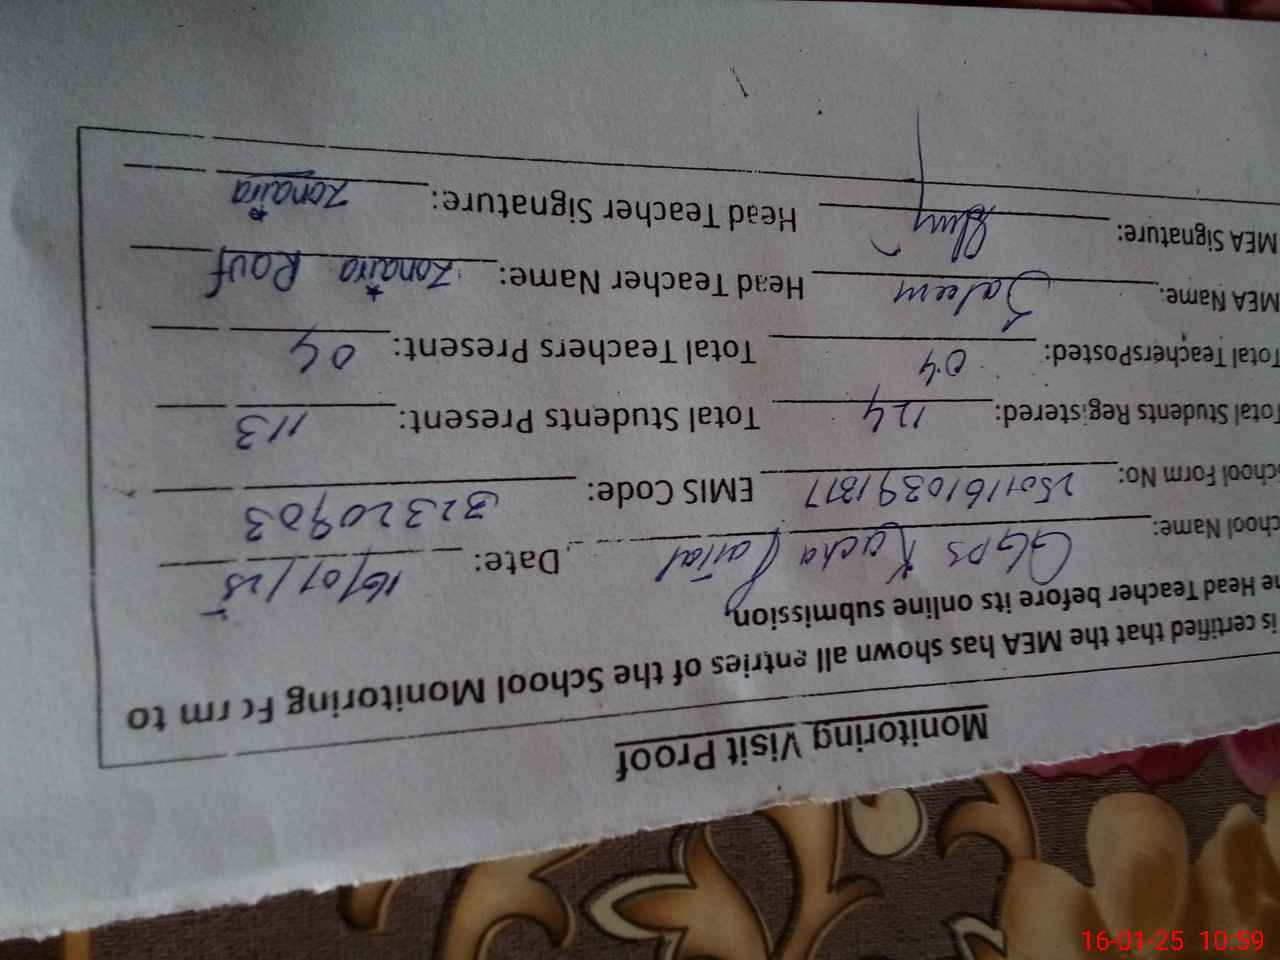 Monitoring Visit Proof
is certified that the MEA has shown all entries of the School Monitoring Form to
he Head Teacher before its online submission,
chool Name: GGPS Kacha Date: 16/01/25
School Form No: EMIS Code: 32320903
Total Students Registered: 124 Total Students Present: 113
Total TeachersPosted: 04 Total Teachers Present: 04
MEA Name: Saleem Head Teacher Name: Zonaira Rauf
MEA Signature: Head Teacher Signature: Zonaira
16-01-25 10:59